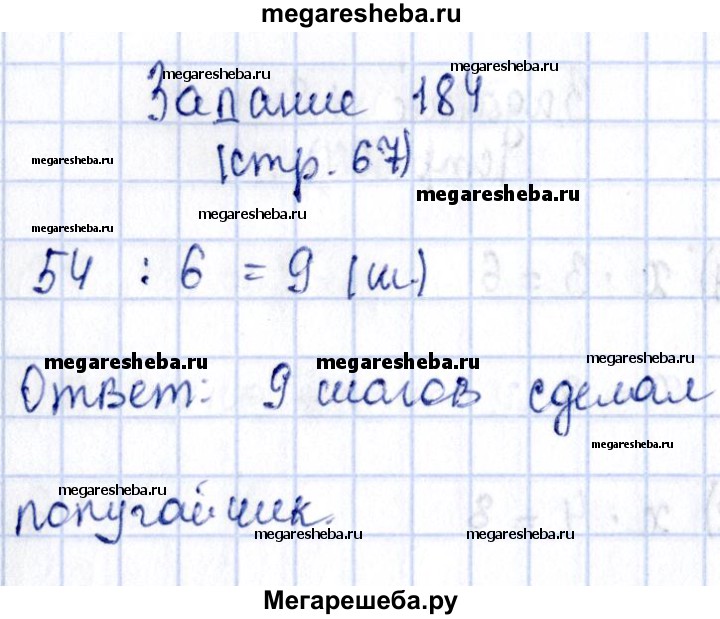 megaresheba.ru
megaresheba.ru
megaresheba.ru
Задание 184
megaresheba.ru
(стр. 67)
megaresheba.ru
megaresheba.ru
megaresheba.ru
54 : 6 = 9 (ш.)
megaresheba.ru
megaresheba.ru
megaresheba.ru
Ответ: 9 шагов сделал
megaresheba.ru
megaresheba.ru
попугайчик.
megaresheba.ru
megaresheba.ru
Мегарешеба.ру